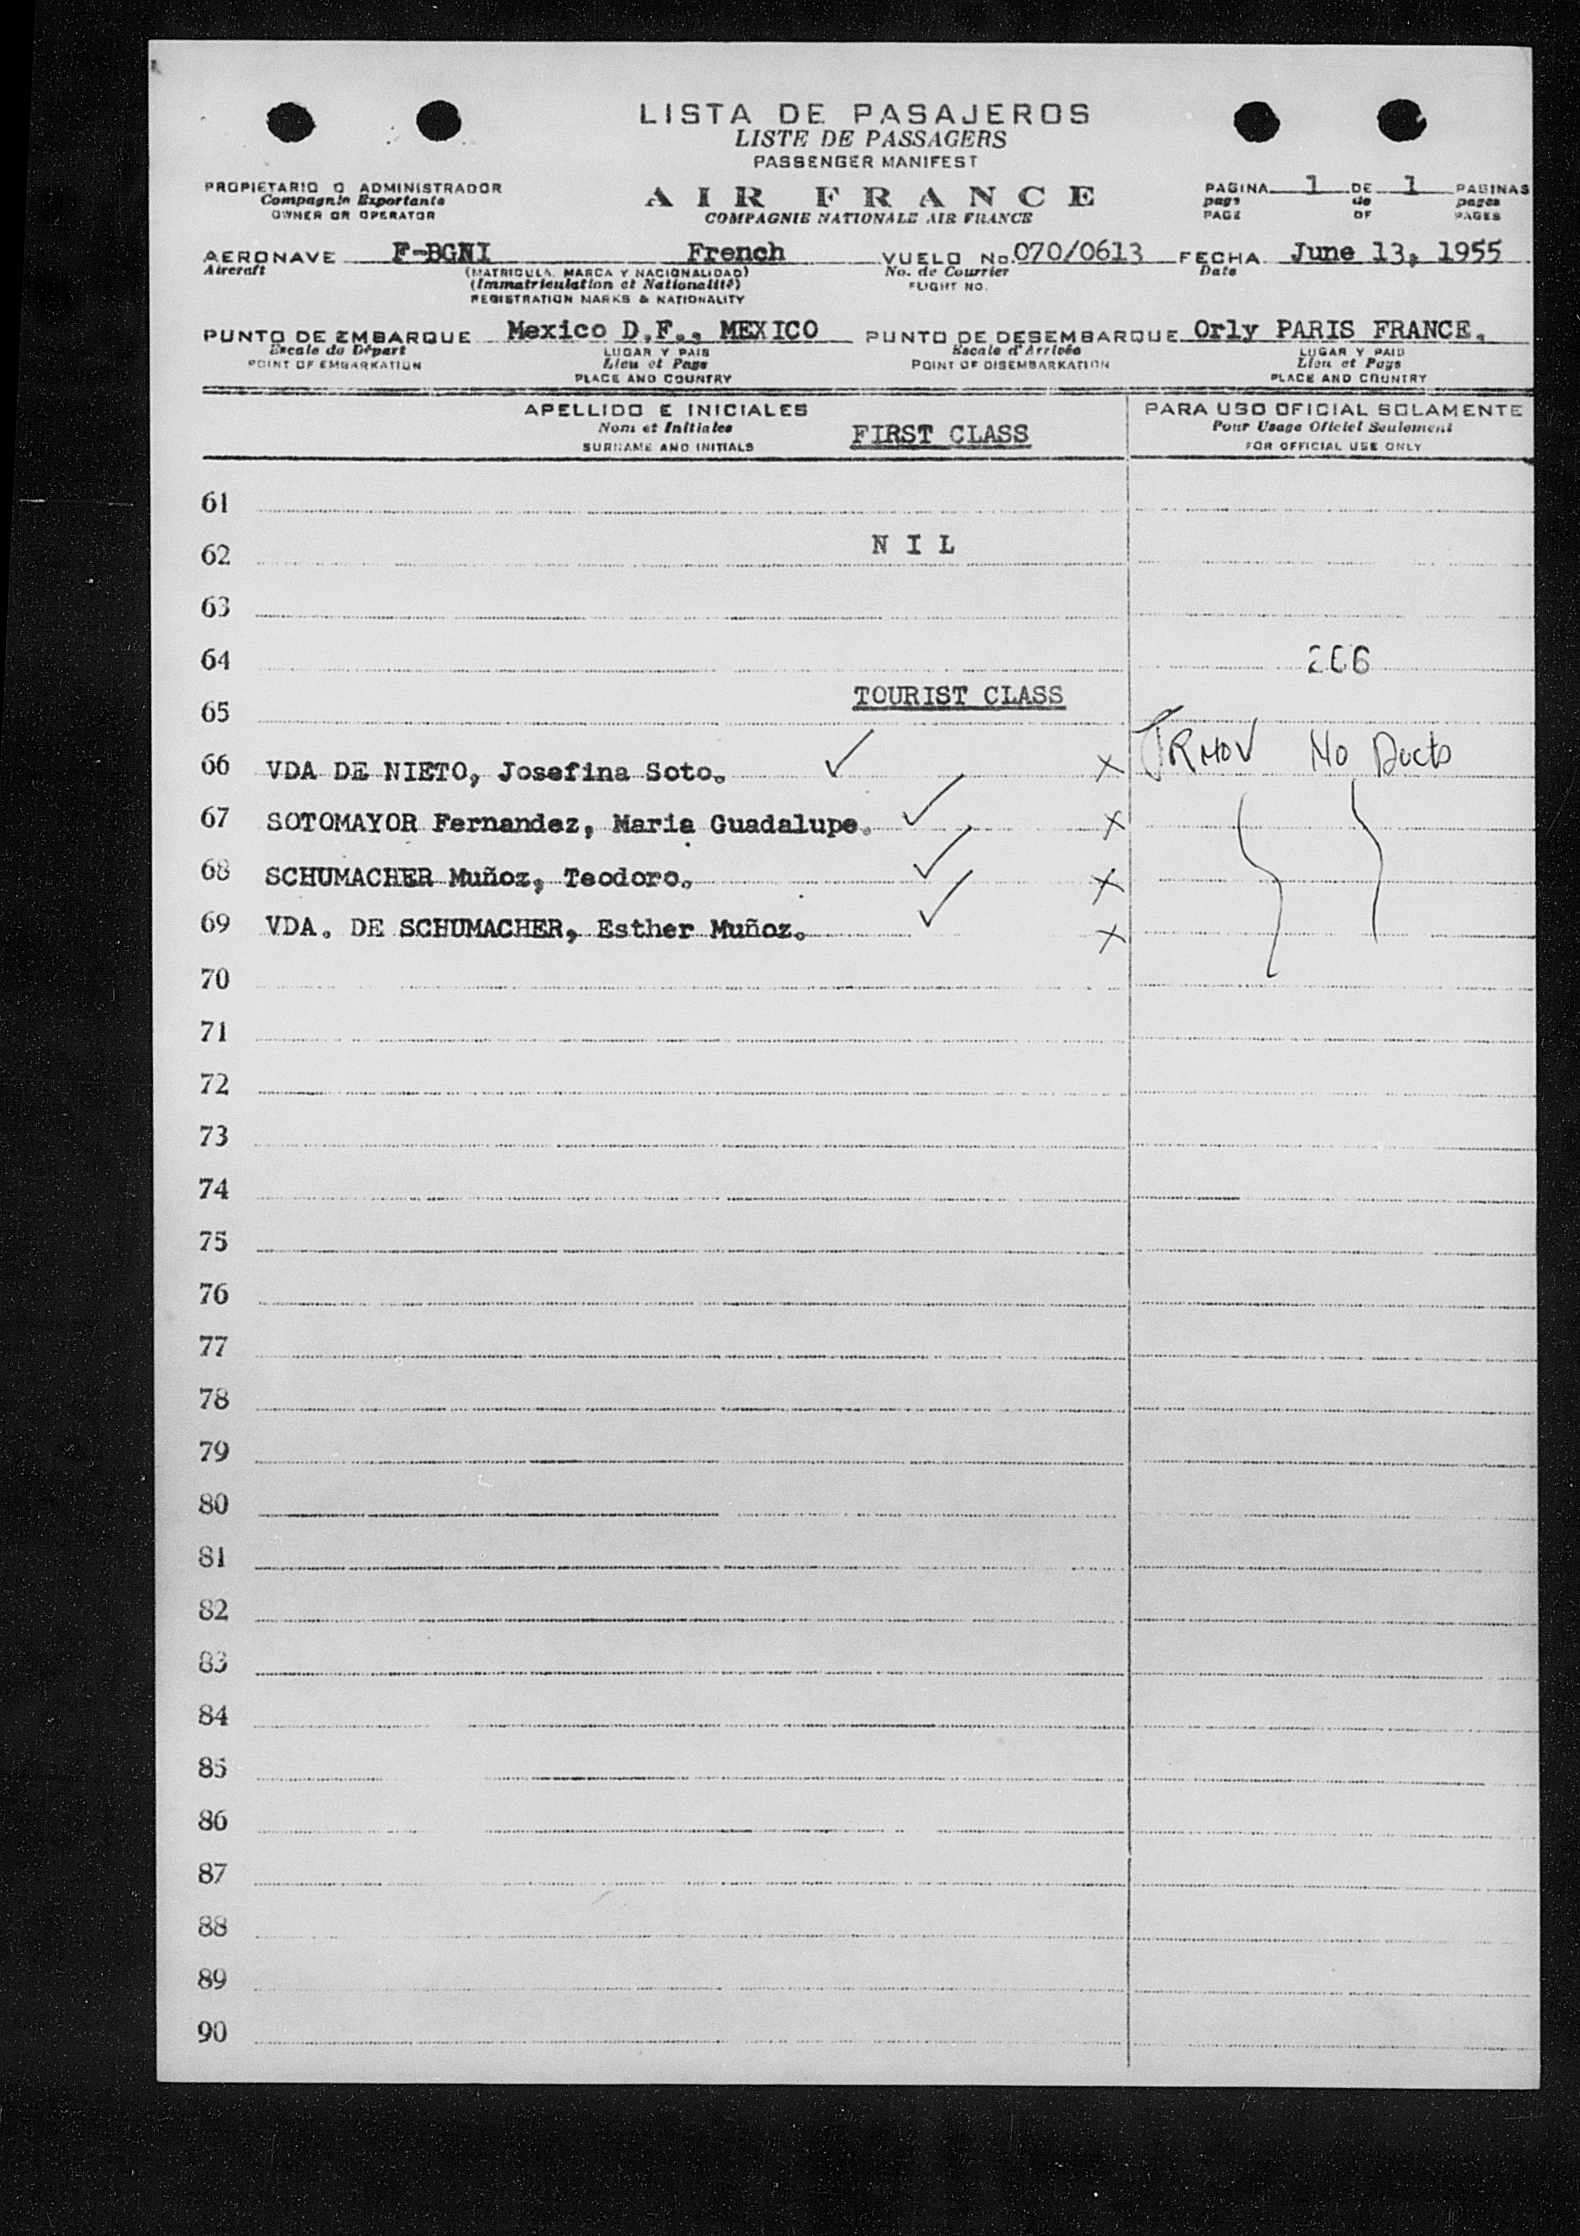 LISTA DE PASAJEROS
LISTE DE PASSAGERS
PASSENGER MANIFEST
PROPIETARIO O ADMINISTRADOR
Compagnie Exportante
OWNER OR OPERATOR
AIR FRANCE
COMPAGNIE NATIONALE AIR FRANCE
PAGINA 1 DE 1 PAGINAS
page de pages
PAGE OF PAGES
AERONAVE F-BGNI French VUELO No. 070/0613 FECHA June 13, 1955
Aircraft (MATRICULA, MARCA Y NACIONALIDAD) No. de Courrier Date
(Immatriculation et Nationalité) FLIGHT NO.
REGISTRATION MARKS & NATIONALITY
PUNTO DE EMBARQUE Mexico D.F., MEXICO PUNTO DE DESEMBARQUE Orly PARIS FRANCE.
Escale de Départ LUGAR Y PAIS Escale d'Arrivée LUGAR Y PAIS
POINT OF EMBARKATION Lieu et Pays POINT OF DISEMBARKATION Lieu et Pays
PLACE AND COUNTRY PLACE AND COUNTRY
APELLIDO E INICIALES PARA USO OFICIAL SOLAMENTE
Nom et Initiales FIRST CLASS Pour Usage Officiel Seulement
SURNAME AND INITIALS FOR OFFICIAL USE ONLY
61
62 N I L
63
64
65 TOURIST CLASS
66 VDA DE NIETO, Josefina Soto. No Docto
67 SOTOMAYOR Fernandez, Maria Guadalupe.
68 SCHUMACHER Muñoz, Teodoro.
69 VDA. DE SCHUMACHER, Esther Muñoz.
70
71
72
73
74
75
76
77
78
79
80
81
82
83
84
85
86
87
88
89
90